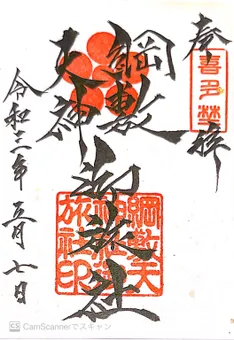 奉拝
喜多埜
綱敷
天神
御旅社
綱敷天
神御
旅社印
令和三年五月七日
CS CamScannerでスキャン